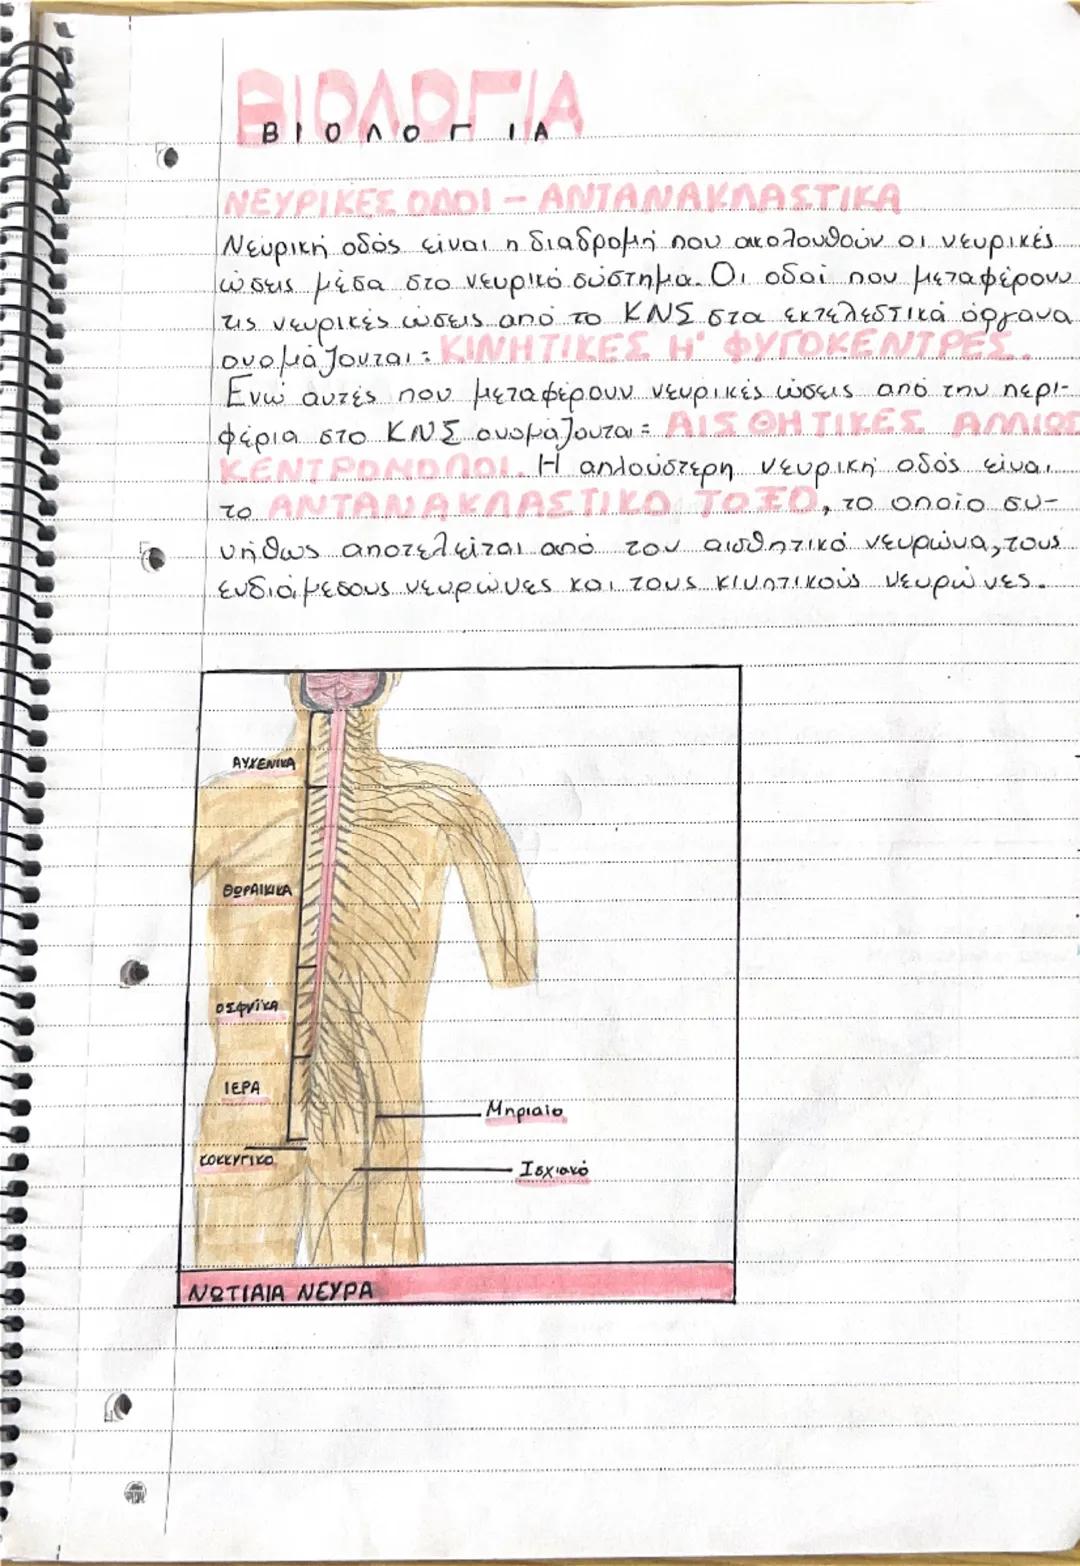 ΒΙΟΛΟΓΙΑ
ΒΙΟΛΟΓΙΑ
ΝΕΥΡΙΚΕΣ ΟΔΟΙ - ΑΝΤΑΝΑΚΛΑΣΤΙΚΑ
Νευρική οδός είναι η διαδρομή που ακολουθούν οι νευρικές
ώσεις μέσα στο νευρικό σύστημα. Οι οδοί που μεταφέρουν
τις νευρικές ώσεις από το ΚΝΣ στα εκτελεστικά όργανα
ονομάζονται: ΚΙΝΗΤΙΚΕΣ Η' ΦΥΓΟΚΕΝΤΡΕΣ.
Ενώ αυτές που μεταφέρουν νευρικές ώσεις από την περι-
φέρια στο ΚΝΣ ονομάζονται: ΑΙΣΘΗΤΙΚΕΣ ΑΛΛΙΩΣ
ΚΕΝΤΡΟΜΟΛΟΙ. Η απλούστερη νευρική οδός είναι
το ΑΝΤΑΝΑΚΛΑΣΤΙΚΟ ΤΟΞΟ, το οποίο συ-
νήθως αποτελείται από τον αισθητικό νευρώνα, τους
ενδιάμεσους νευρώνες και τους κινητικούς νευρώνες.
ΑΥΧΕΝΙΚΑ
ΘΩΡΑΙΚΙΚΑ
ΟΣΦΥΪΚΑ
ΙΕΡΑ
ΚΟΚΚΥΓΙΚΟ
Μηριαίο
Ισχιακό
ΝΩΤΙΑΙΑ ΝΕΥΡΑ